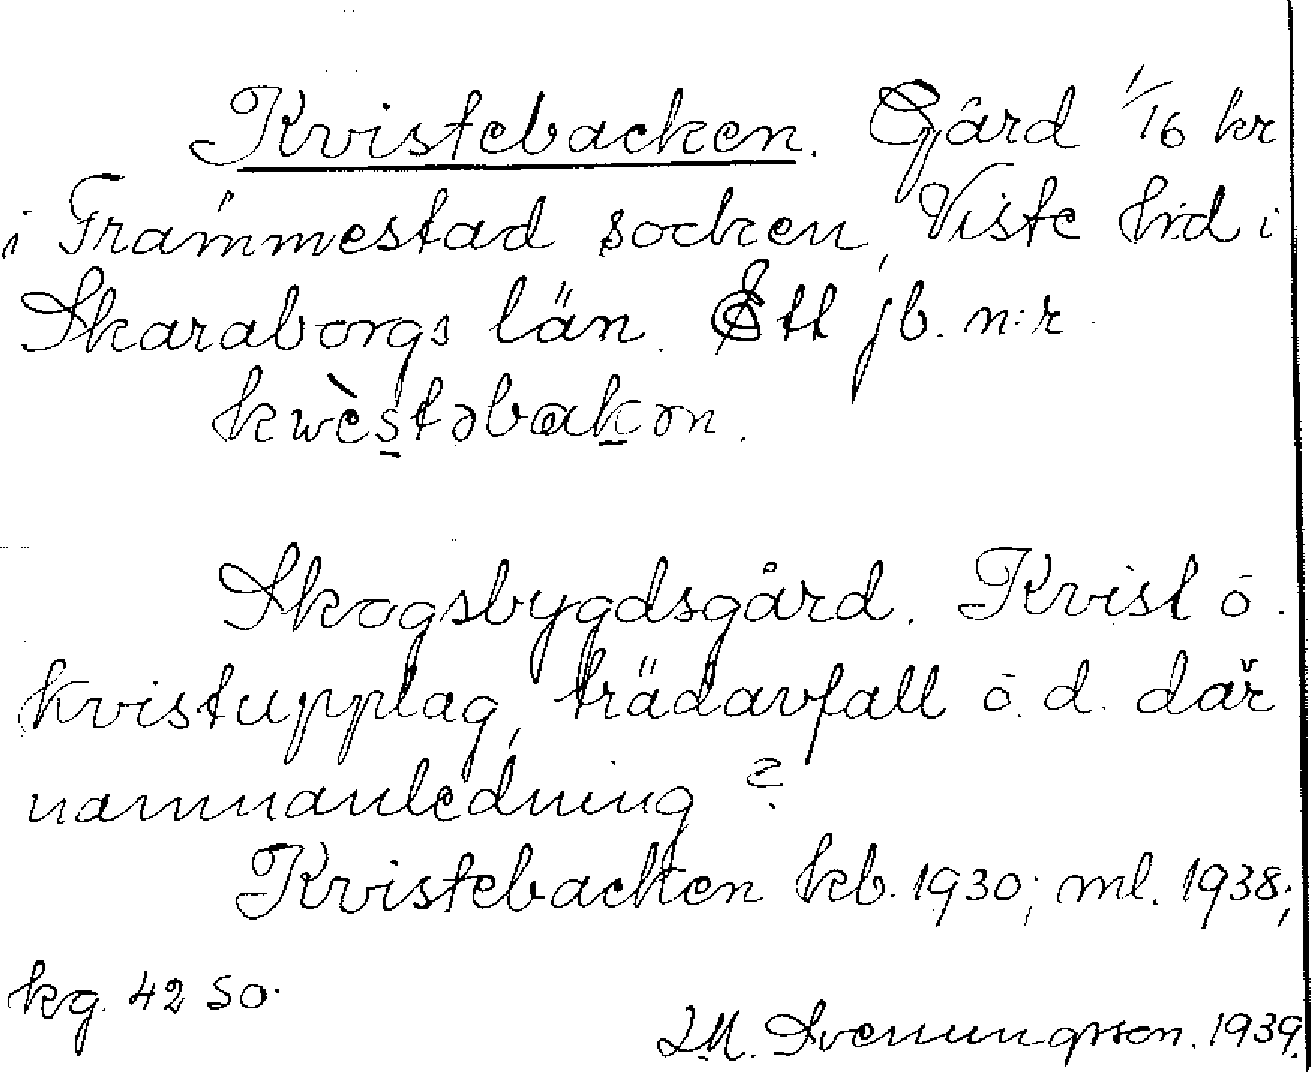 Kvistebacken. Gård 1/16 kr
i Trämmestad socken, Viste hrd i
Skaraborgs län. Ett jb. n:r
kwèstəbakən.
Skogsbygdsgård. Kvist o.
kvistupplag, trädavfall o. d. där
namnanledning?
Kvistebacken kb. 1930; ml. 1938;
kg. 42 SO.
Svenungsson. 1939.